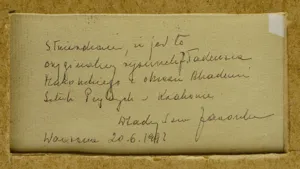 Stwierdzam, że jest to
oryginalny rysunek Tadeusza
Makowskiego z okresu Akademii
Sztuk Pięknych w Krakowie
Władysław
Warszawa 20.6.